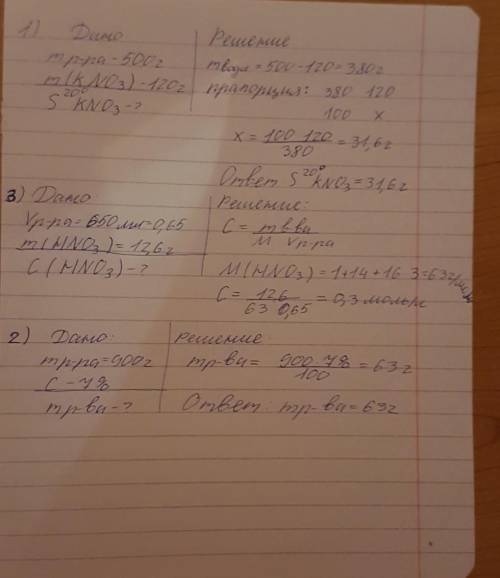 1) Дано
mр-ра - 500г
m(KNO3) - 120г
S 20° KNO3 - ?
Решение
mводы = 500 - 120 = 380г
прапорция: 380 120
100 x
x = 100 120 / 380 = 31,6г
Ответ S 20° KNO3 = 31,6г
3) Дано
Vр-ра = 650 мл = 0,65
m(HNO3) = 12,6г
C(HNO3) - ?
Решение:
C = mв-ва / M Vр-ра
M(HNO3) = 1+14+16 3 = 63г/моль
C = 126 / 63 0,65 = 0,3 моль/л
2) Дано:
mр-ра = 900г
C - 7%
mр-ва - ?
Решение:
mр-ва = 900 7% / 100 = 63г
Ответ: mр-ва = 63г